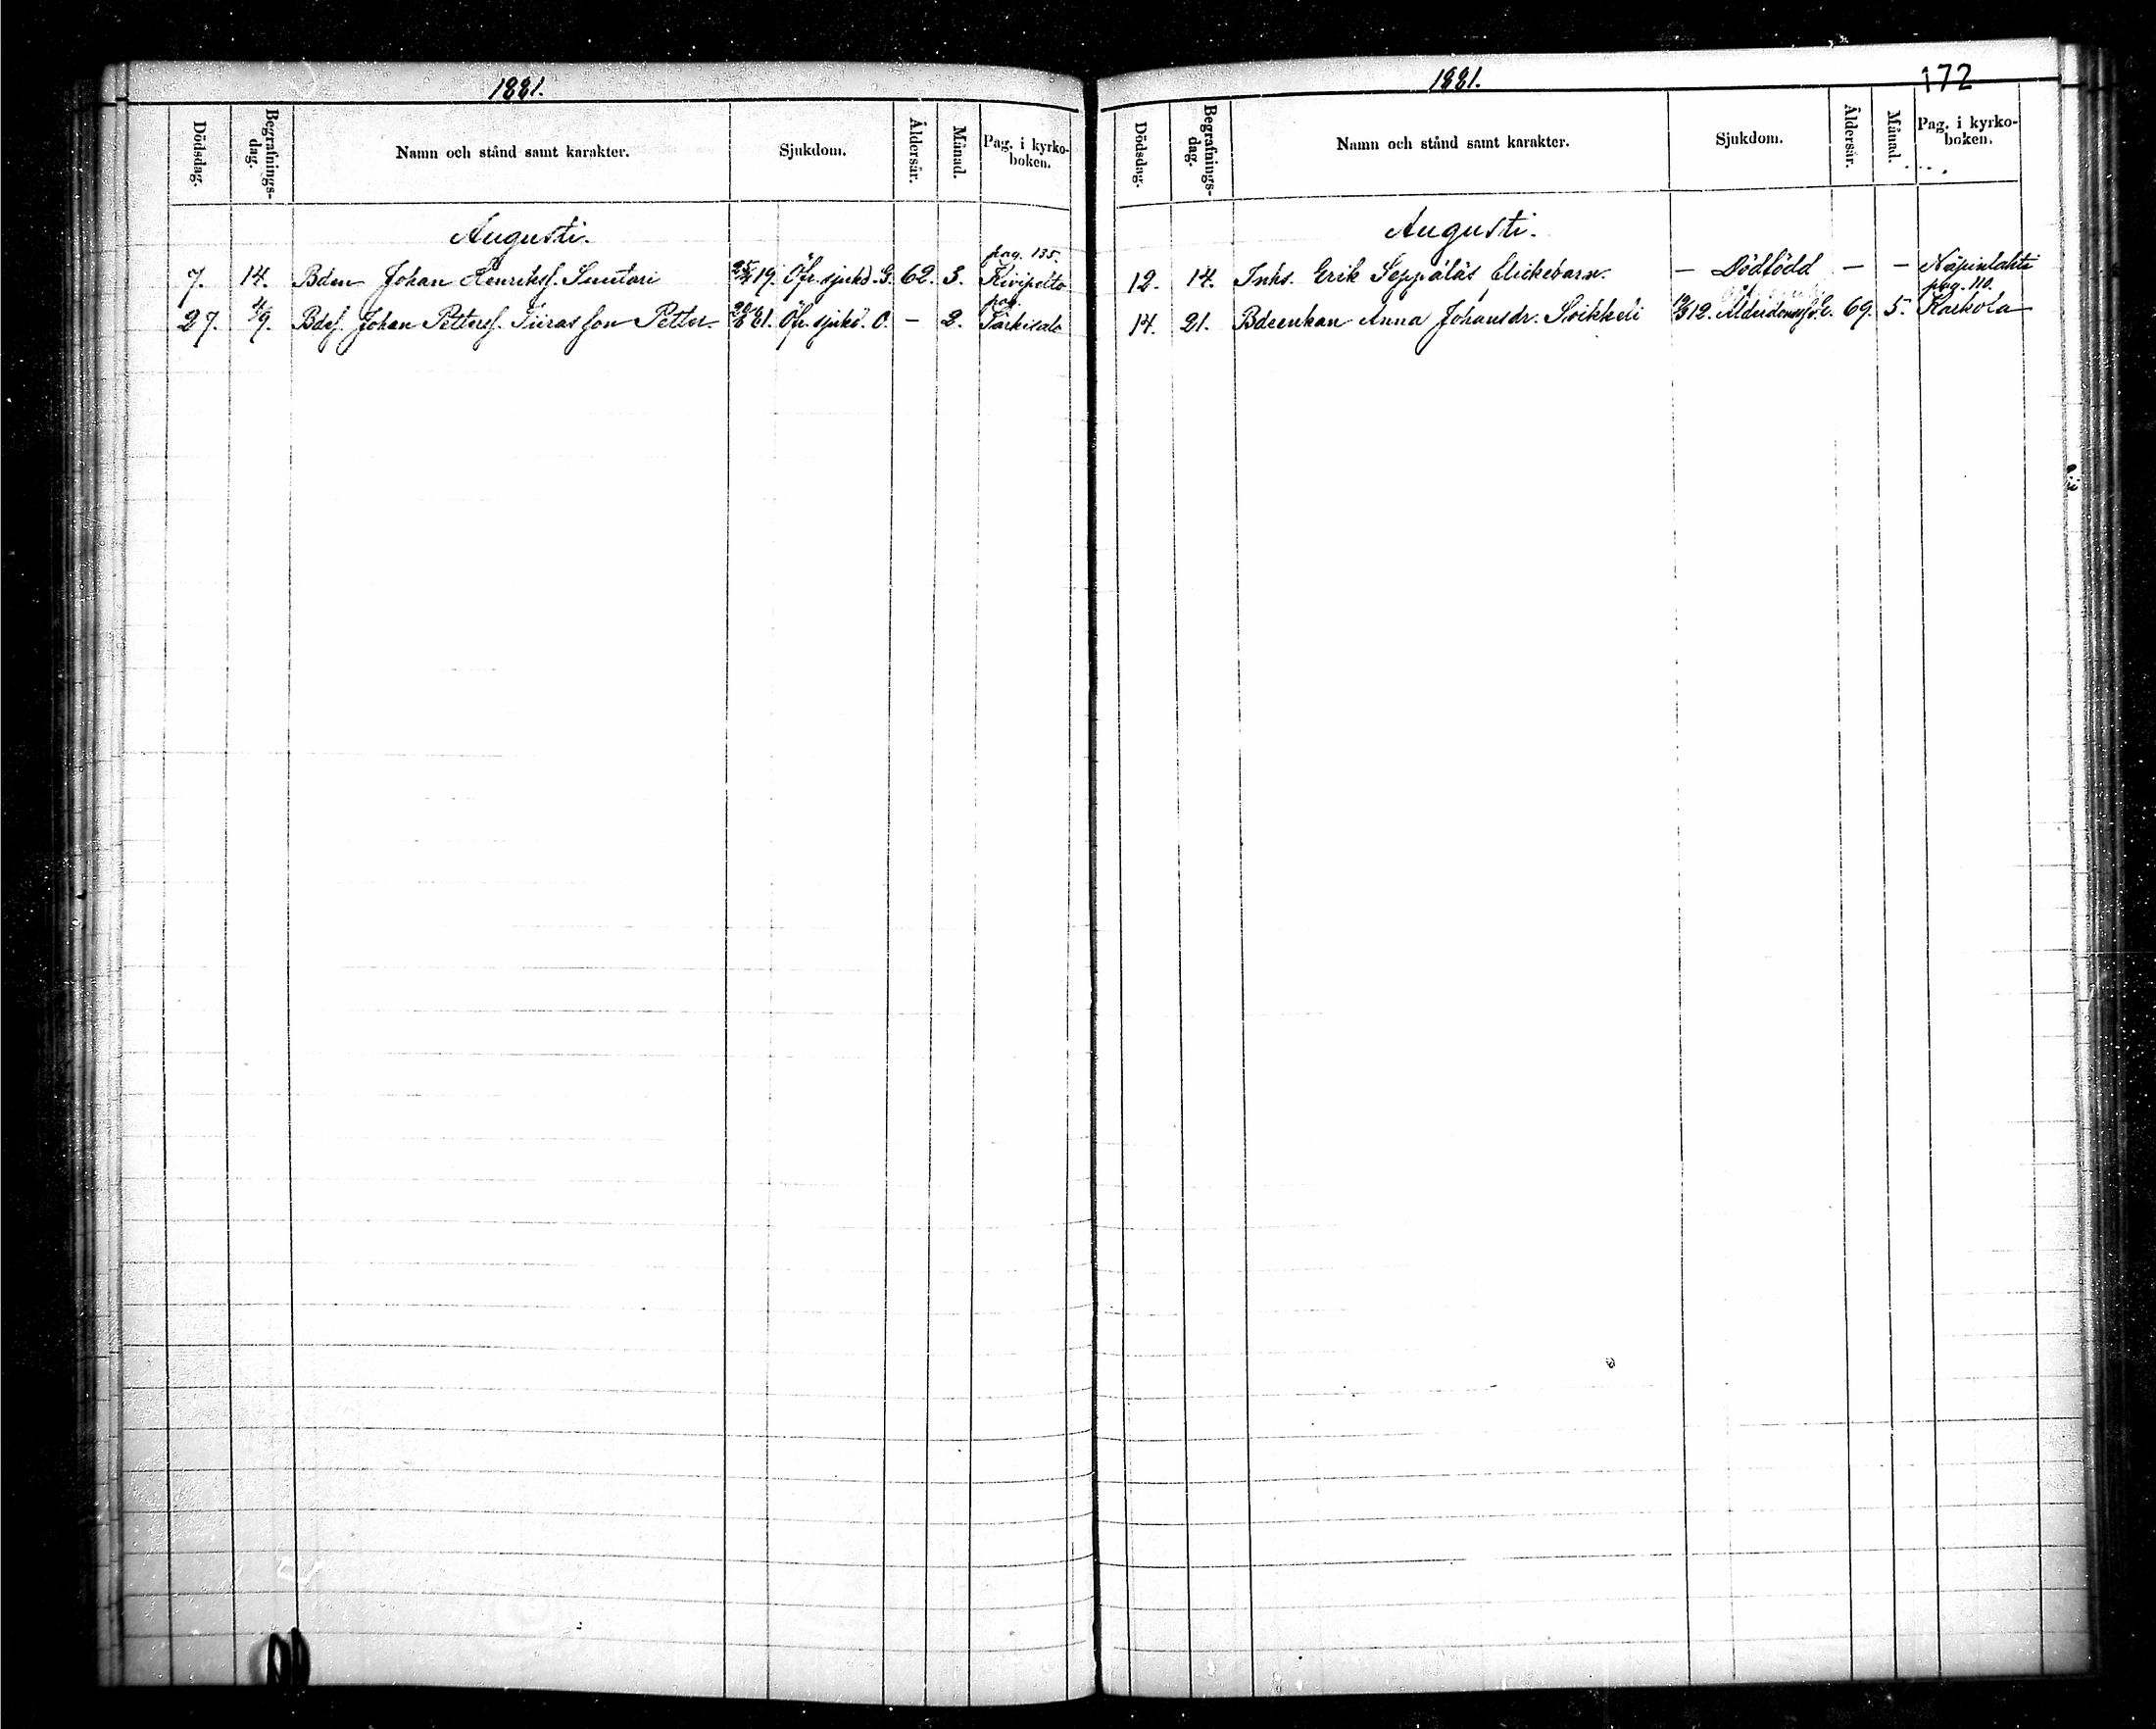 1881.
Dödsdag. Begrafnings-dag. Namn och stånd samt karakter. Sjukdom. Åldersår. Månad. Pag. i kyrko-boken.
Augusti.
pag. 135.
7. 14. Bden Johan Henrikss. Suutari 25/4 19. Öfr. sjukd. G. 62. 3. Kivipelto
pag.
27. 4/9. Bdes. Johan Petterss. Siiras son Petter. 20/6 81. Öfr. sjukd. O. — 2. Särkisalo
1881.
172
Dödsdag. Begrafnings-dag. Namn och stånd samt karakter. Sjukdom. Åldersår. Månad. Pag. i kyrko-boken.
Augusti.
12. 14. Inhs. Erik Seppäläs flickebarn. — Dödfödd — — Näpinlahti
pag. 110.
14. 21. Bdeenkan Anna Johansdr. Soikkeli 12. Ålderdomss. E. 69. 5. Karkola